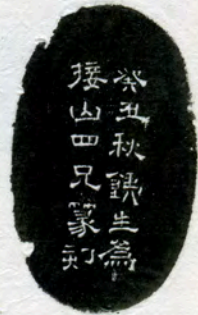 癸丑秋鐵生為
接山四兄篆刻